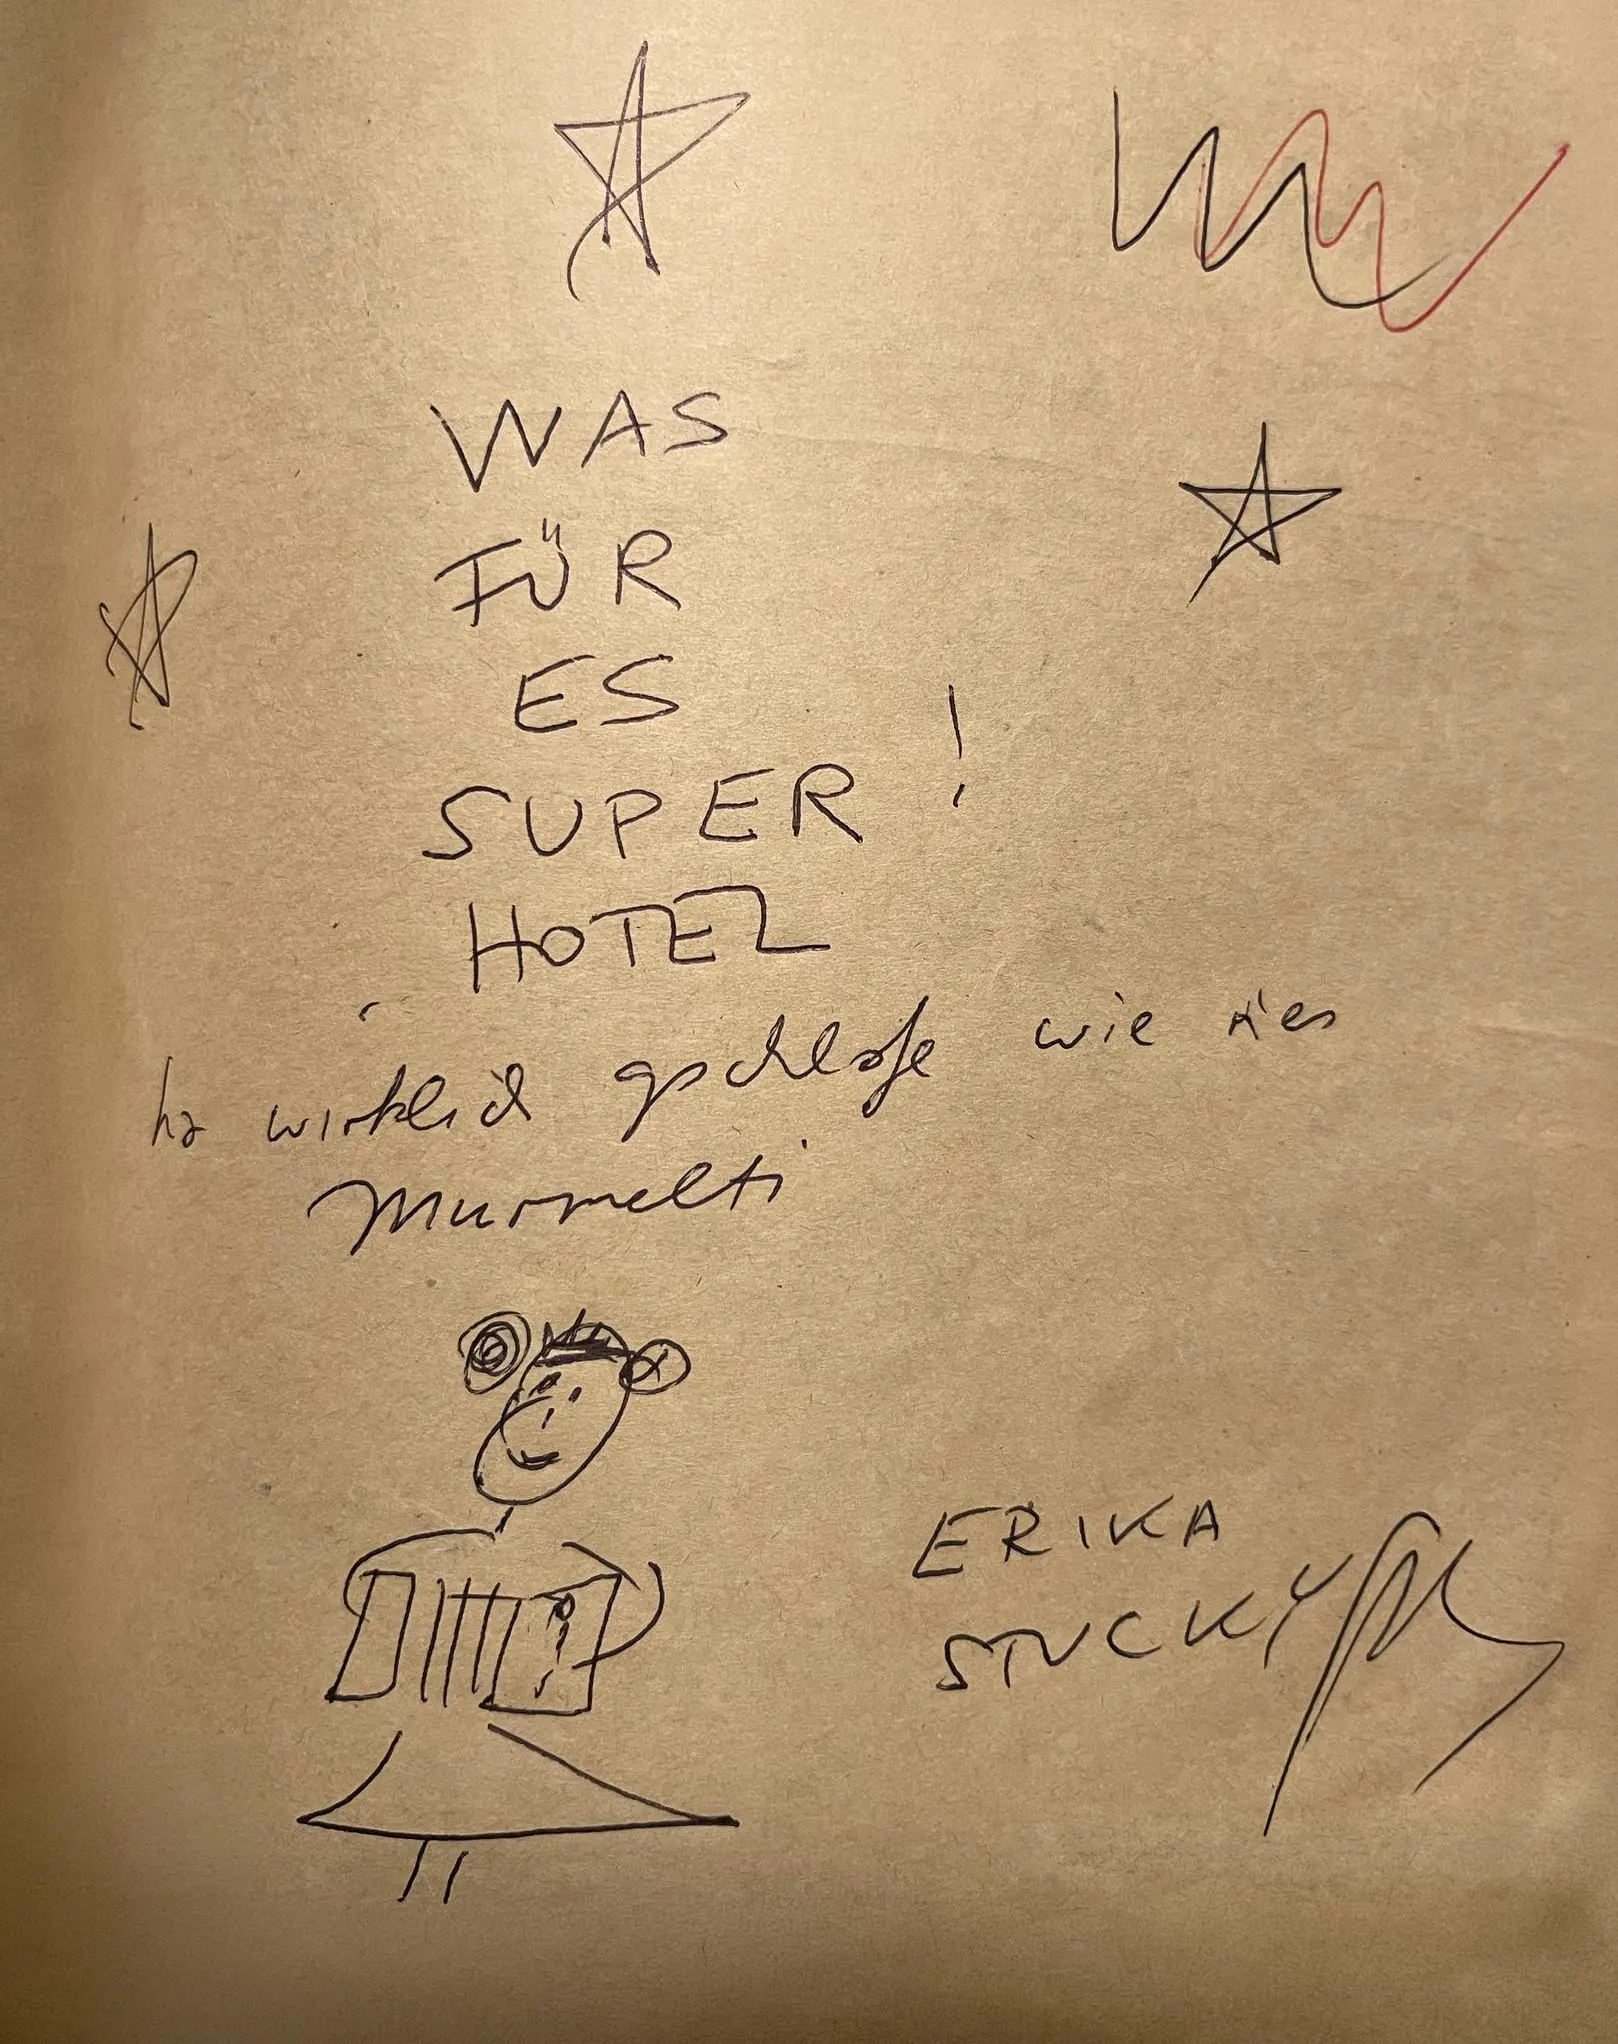 WAS
FÜR
ES
SUPER !
HOTEL
ha wirklich gschlofe wie n'es
Murmelti
ERIKA
STUCKY